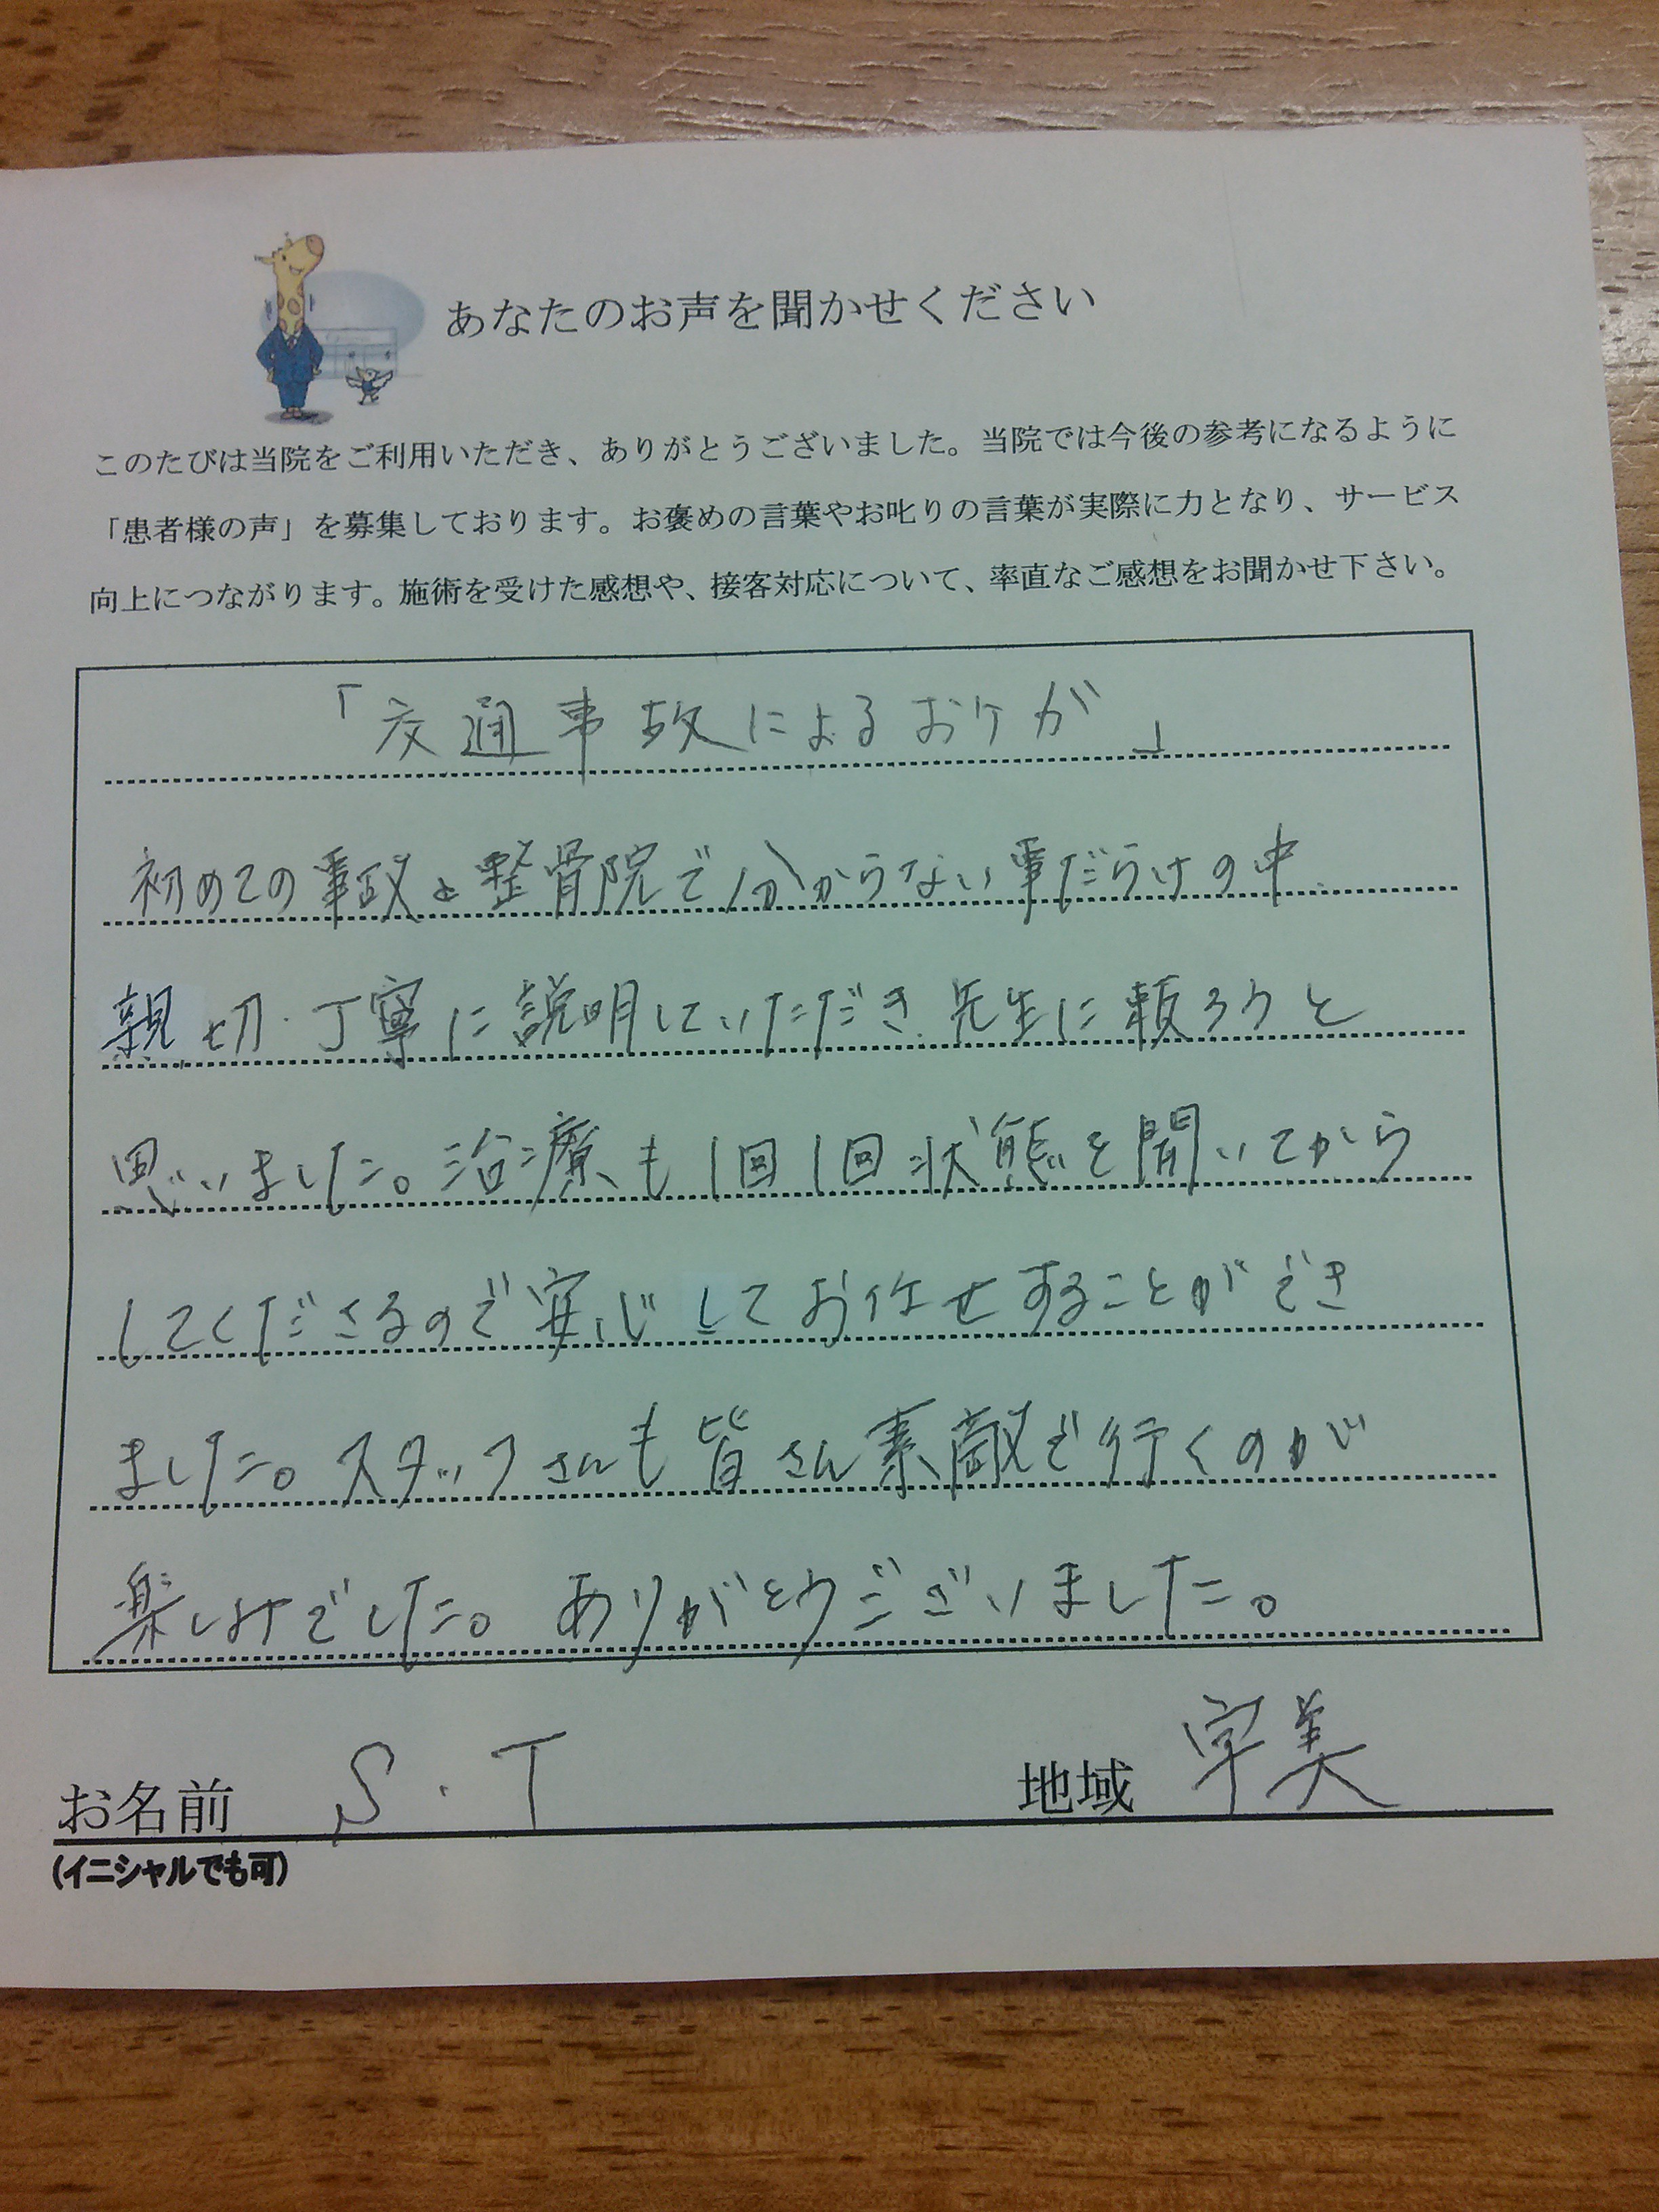 あなたのお声を聞かせください
このたびは当院をご利用いただき、ありがとうございました。当院では今後の参考になるように
「患者様の声」を募集しております。お褒めの言葉やお叱りの言葉が実際に力となり、サービス
向上につながります。施術を受けた感想や、接客対応について、率直なご感想をお聞かせ下さい。
「交通事故によるおケガ」
初めての事故と整骨院で分からない事だらけの中
親切・丁寧に説明していただき、先生に頼ろうと
思いました。治療も1回1回状態を聞いてから
してくださるので安心してお任せすることができ
ました。スタッフさんも皆さん素敵で行くのが
楽しみでした。ありがとうございました。
お名前 S・T 地域 宇美
(イニシャルでも可)